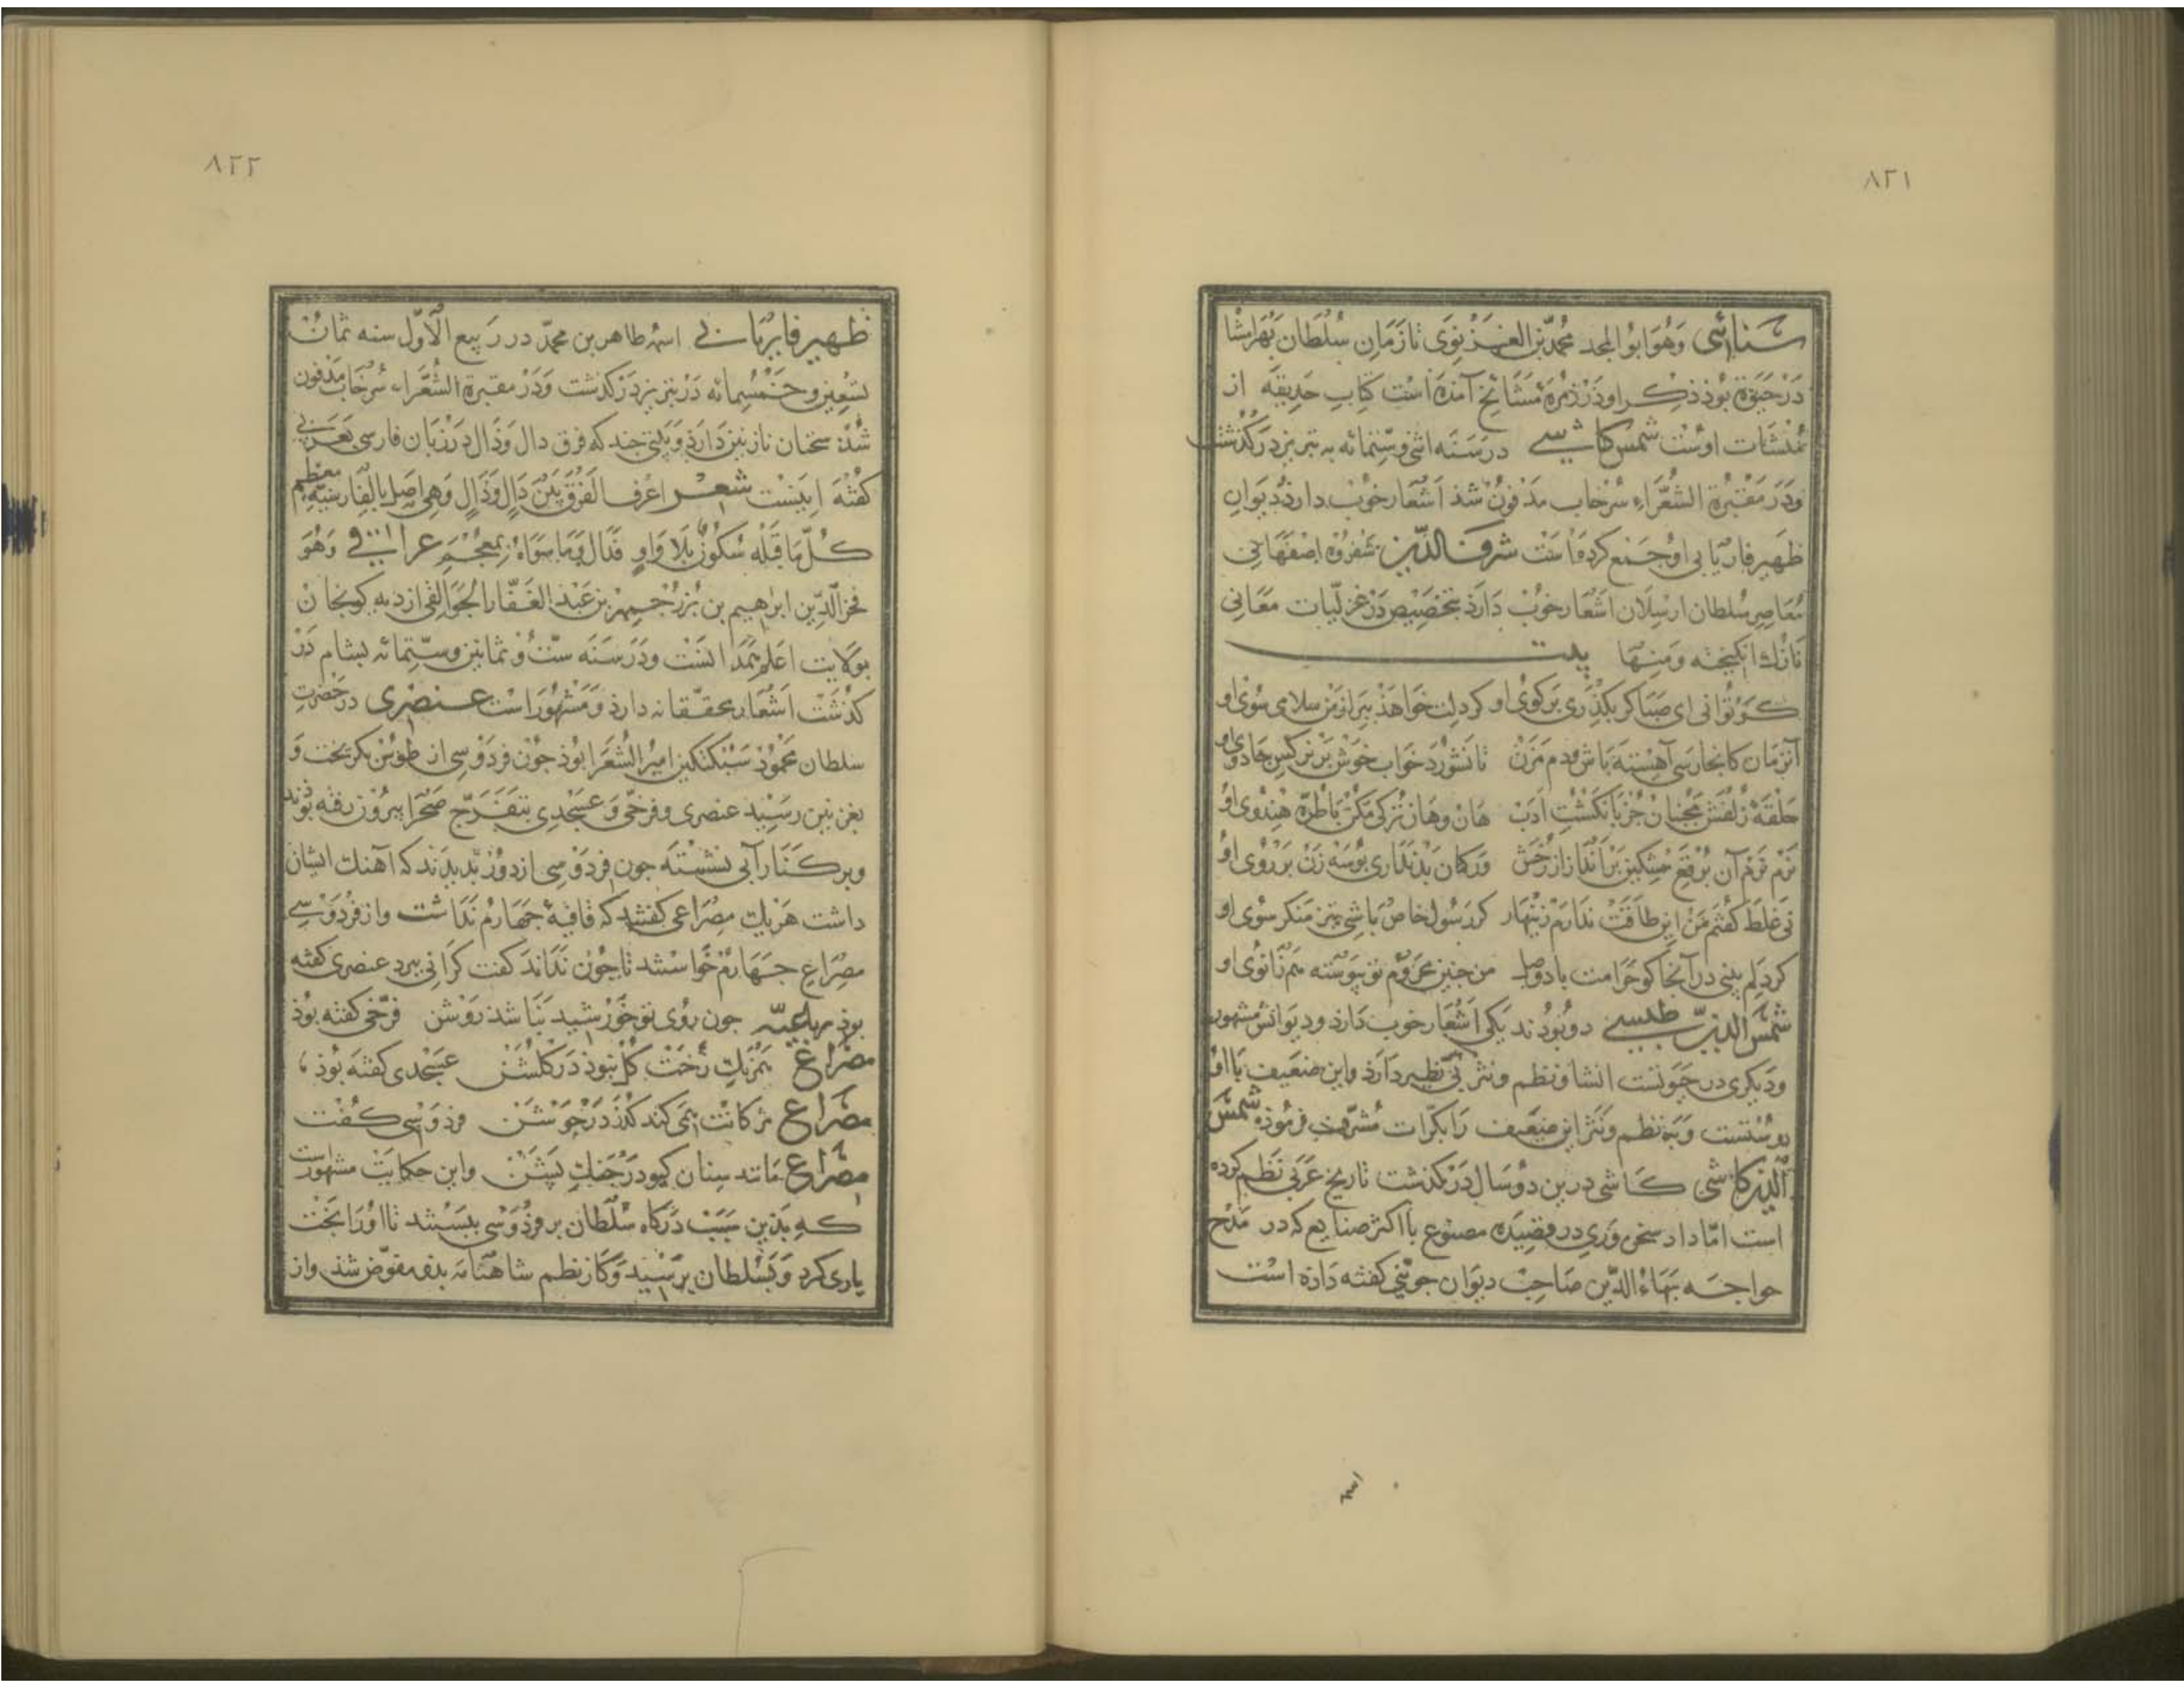 ۸۲۱
سنائی وَهُوَ ابوُ المجد محُمّد بن الغزنوَی تا زَمَانِ سُلْطان بَهْرامشا
دَرحیوة بوُذ ذکر او دَر زمُرَهٔ مَشَایخ آمَذه اسْت کتابِ حَدیقه از
مُنشَات اوسْت شمس کاشی در سَنَه اثنی وستمائه به تبریز درکذشت
ودَر مَقبرَة الشُعَراءِ سُرْخاب مَدفونْ شذ اَشعار خوُبْ دارذ دیوَانِ
ظهیر فاریابی اوُ جَمع کرده است شرف الدّین شفروه اصْفهَانی
مُعَاصِر سُلطان ارسلان اشعَار خوُبْ دَارَذ بتخصیص دَر غزلیّات مَعَانی
نازک انکیخته وَمنهَا بیت
کر توُانی ای صَبَا کر بکذری بَر کوی او کر دلت خواهَذ ببر از مَن سلامی سُوی او
آنزمَان کانجا رسی آهسته بَاش ودم مَزَنْ تا نشورَد خواب خوَش بَر نرکس جادوی او
حَلقَهٔ زلفش مجنبان جُز بانکشتِ ادَبْ هَان وهَان ترکی مکن با طرّه هندوی اوُ
نَرْم نَرْم آن بُرْقع مشکین بَر اندَاز از رخش وَرکمان بَد نداری بوُسَه زَن بَر روُی اوُ
نی غَلَط کفتم مَنْ این طاقت ندارم زینهار کر رسُول خاص بَاشی تیز منکر سُوی او
کر دلم بینی در آنجا کو حَرَامت باد وصل من جنین محرُوم تو پیوسته هم زانوی او
شمَسَ الدین طبسی دو بوُدند یکی اَشعَار خوب دَارَذ ودیوَانش مَشهور
ودیکری در حیَوتست انشا ونظم ونثر بی نظیر دَارَذ واین ضعیف با اوُ
دوسْتست وَبَه نظم ونَثر این ضَعیف رَا بکرّات مُشرّف فرموُذه شمْس
الدّین کاشی کاشی درین دوُ سَال دَر کذشت تاریخ عَرَبی نَظم کرده
است امّا داد سخن وَرِی در قصیده مصنوع با اکثر صنایع که در مَدْح
خواجه بَهَاءُ الدّین صَاحب دیوَان جوینی کفته دَاده اسْت
اسمه
۸۲۲
ظهیر فاریابی اسمهُ طاهر بن محمّد در رَبیع الاَوّل سنه ثمان
تسْعین وخمسمائه دَر تبریز دَر کذشت وَدَر مقبرة الشُعَرَاء سُرخاب مَدفون
شُدْ سخنان نازنین دَارَذ وَبیتی جند که فرق دال وَذال دَر زبَان فارسی بعَربی
کفته اینست شعر اعرف الفرَقَ بَیْنَ دَالٍ وَذَالٍ وَهی اصْل بالفارسیّةِ معظم
کلّ مَا قَبْله سُکوُنٌ بلا وَاوٍ فدَال وَمَا سوَاهُ بمعجمِ عراقی وَهُوَ
فخر الدّین ابراهیم بن بُزرجمهر بن عَبْد الغَفّار الجوَالقی از دیه کوبجان
بوِلایت اَعْلمِ همَدَانست ودَر سَنَه ستّ وثمانین وستّمائه بشام دَر
کذشت اشعَار محَقّقانه دارَذ وَمشهُور است عنصُری در حَضرتِ
سلطان محموُذ سَبُکتکین امیرُ الشُعَرا بوُذ جوُن فردَوْسی از طوُس بکریخت وَ
بغزنین رسیذ عنصری وفرخی وَعسْجدی بتفرّج صَحَرا بیروُن رفته بوُدند
وبر کنار آبی نشسته جون فردَوسی از دوُر بدیدند که آهنک ایشان
داشت هَر یک مِصراعی کفتند که قافیهٔ جهَارم نَدَاشت واز فردَوسی
مِصْرَاع جهَارم خواستند تا جون نَدَاند کفت کرَانی ببرد عنصری کفته
بوذ رباعیه جون روُی تو خوَرشید نبَاشد روَشن فرخی کفته بوُذ
مصَراع همَرنکِ رخَت کل نبوَذ دَر کلشن عسَجدی کفته بوُذ
مصَراع مژکانت همی کند کذر دَر جوَشن فردَوسْی کفت
مصَراع مَانند سنان کیو دَر جنک پشن واین حکایت مشهور است
که بَذین سبَبْ دَرکاه سُلطان بر فردوسی ببستند تا اوُرَا بَخْت
یاری کرد وَبسُلطان برَسید وَکار نظم شاهنامَه بذو مفوّض شذ واز